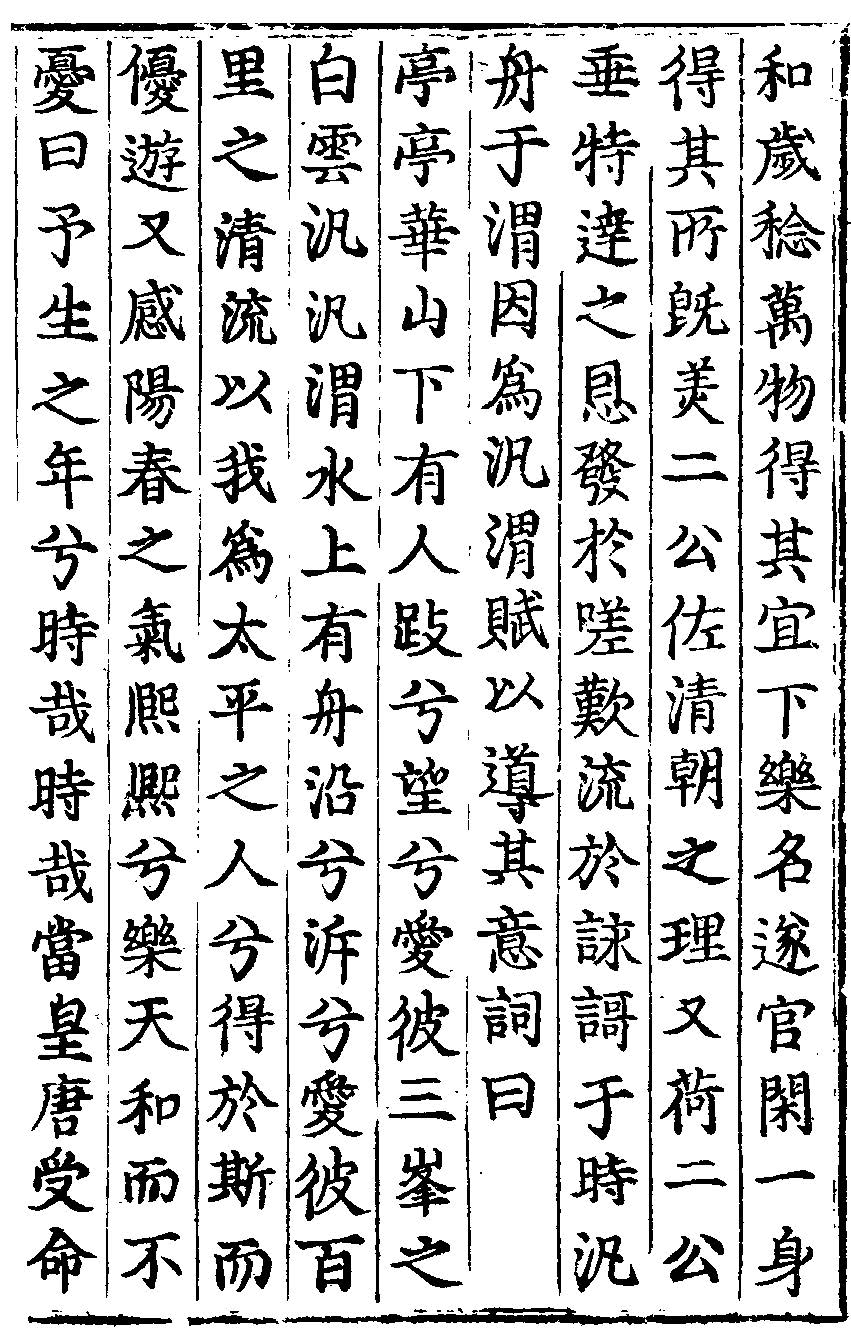 和歲稔萬物得其宜下樂名遂官閑一身
得其所旣美二公佐清朝之理又荷二公
垂特達之恩發於嗟歎流於詠謌于時汎
舟于渭因爲汎渭賦以導其意詞曰
亭亭華山下有人跂兮望兮愛彼三峯之
白雲汎汎渭水上有舟沿兮泝兮愛彼百
里之清流以我爲太平之人兮得於斯而
優遊又感陽春之氣熙熙兮樂天和而不
憂曰予生之年兮時哉時哉當皇唐受命